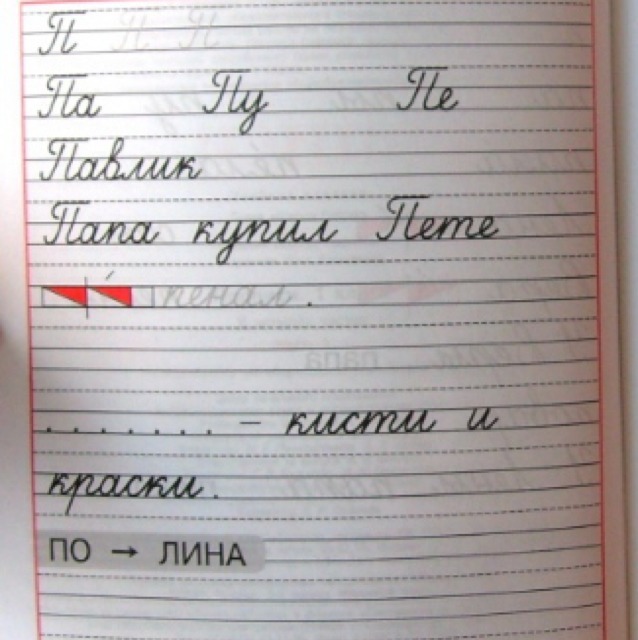 П П П
Па Пу Пе
Павлик
Папа купил Пете
пенал.
папа
. . . . . . . . – кисти и
краски.
ПО → ЛИНА